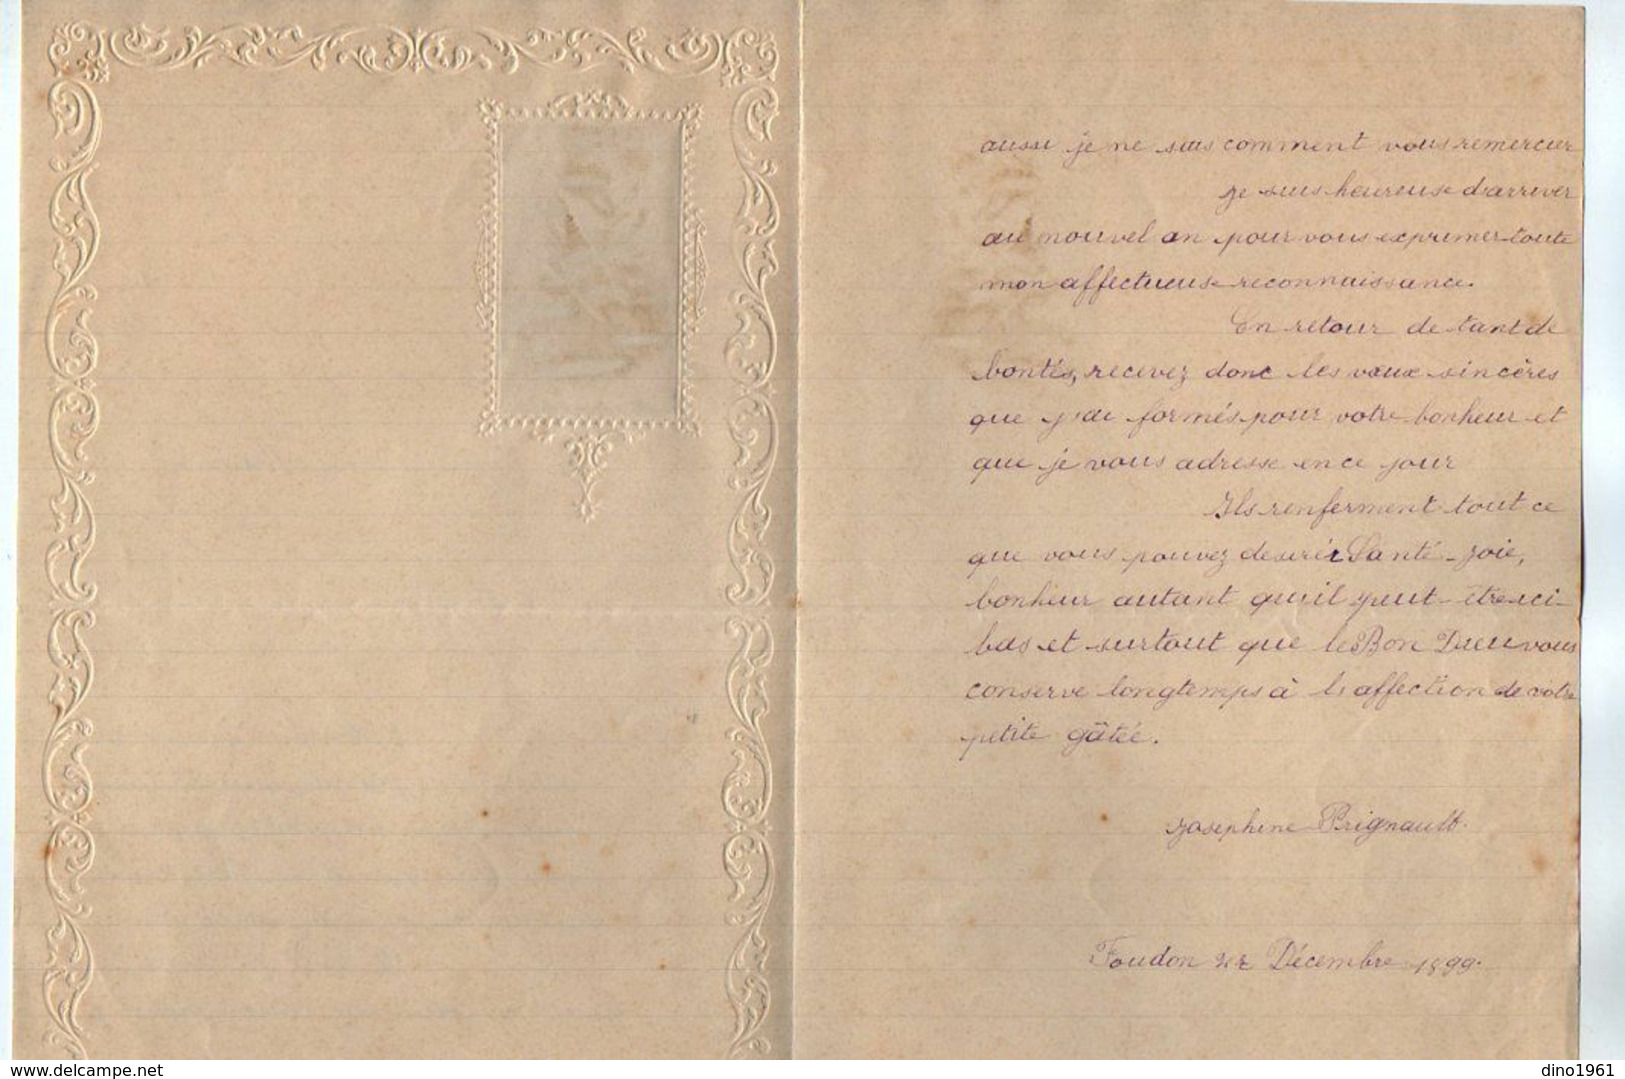 aussi je ne sais comment vous remercier
Je suis heureuse d'arriver
au nouvel an pour vous exprimer toute
mon affectueuse reconnaissance.
En retour de tant de
bontés, recevez donc les vœux sincères
que j'ai formés pour votre bonheur et
que je vous adresse en ce jour
Ils renferment tout ce
que vous pouvez desirér Santé - joie,
bonheur autant qu'il peut-être ici-
bas et surtout que le Bon Dieu vous
conserve longtemps à l'affection de votre
petite gâtée.
Josephine Prignault.
Foudon Décembre 1899.
www.delcampe.net
dino1961